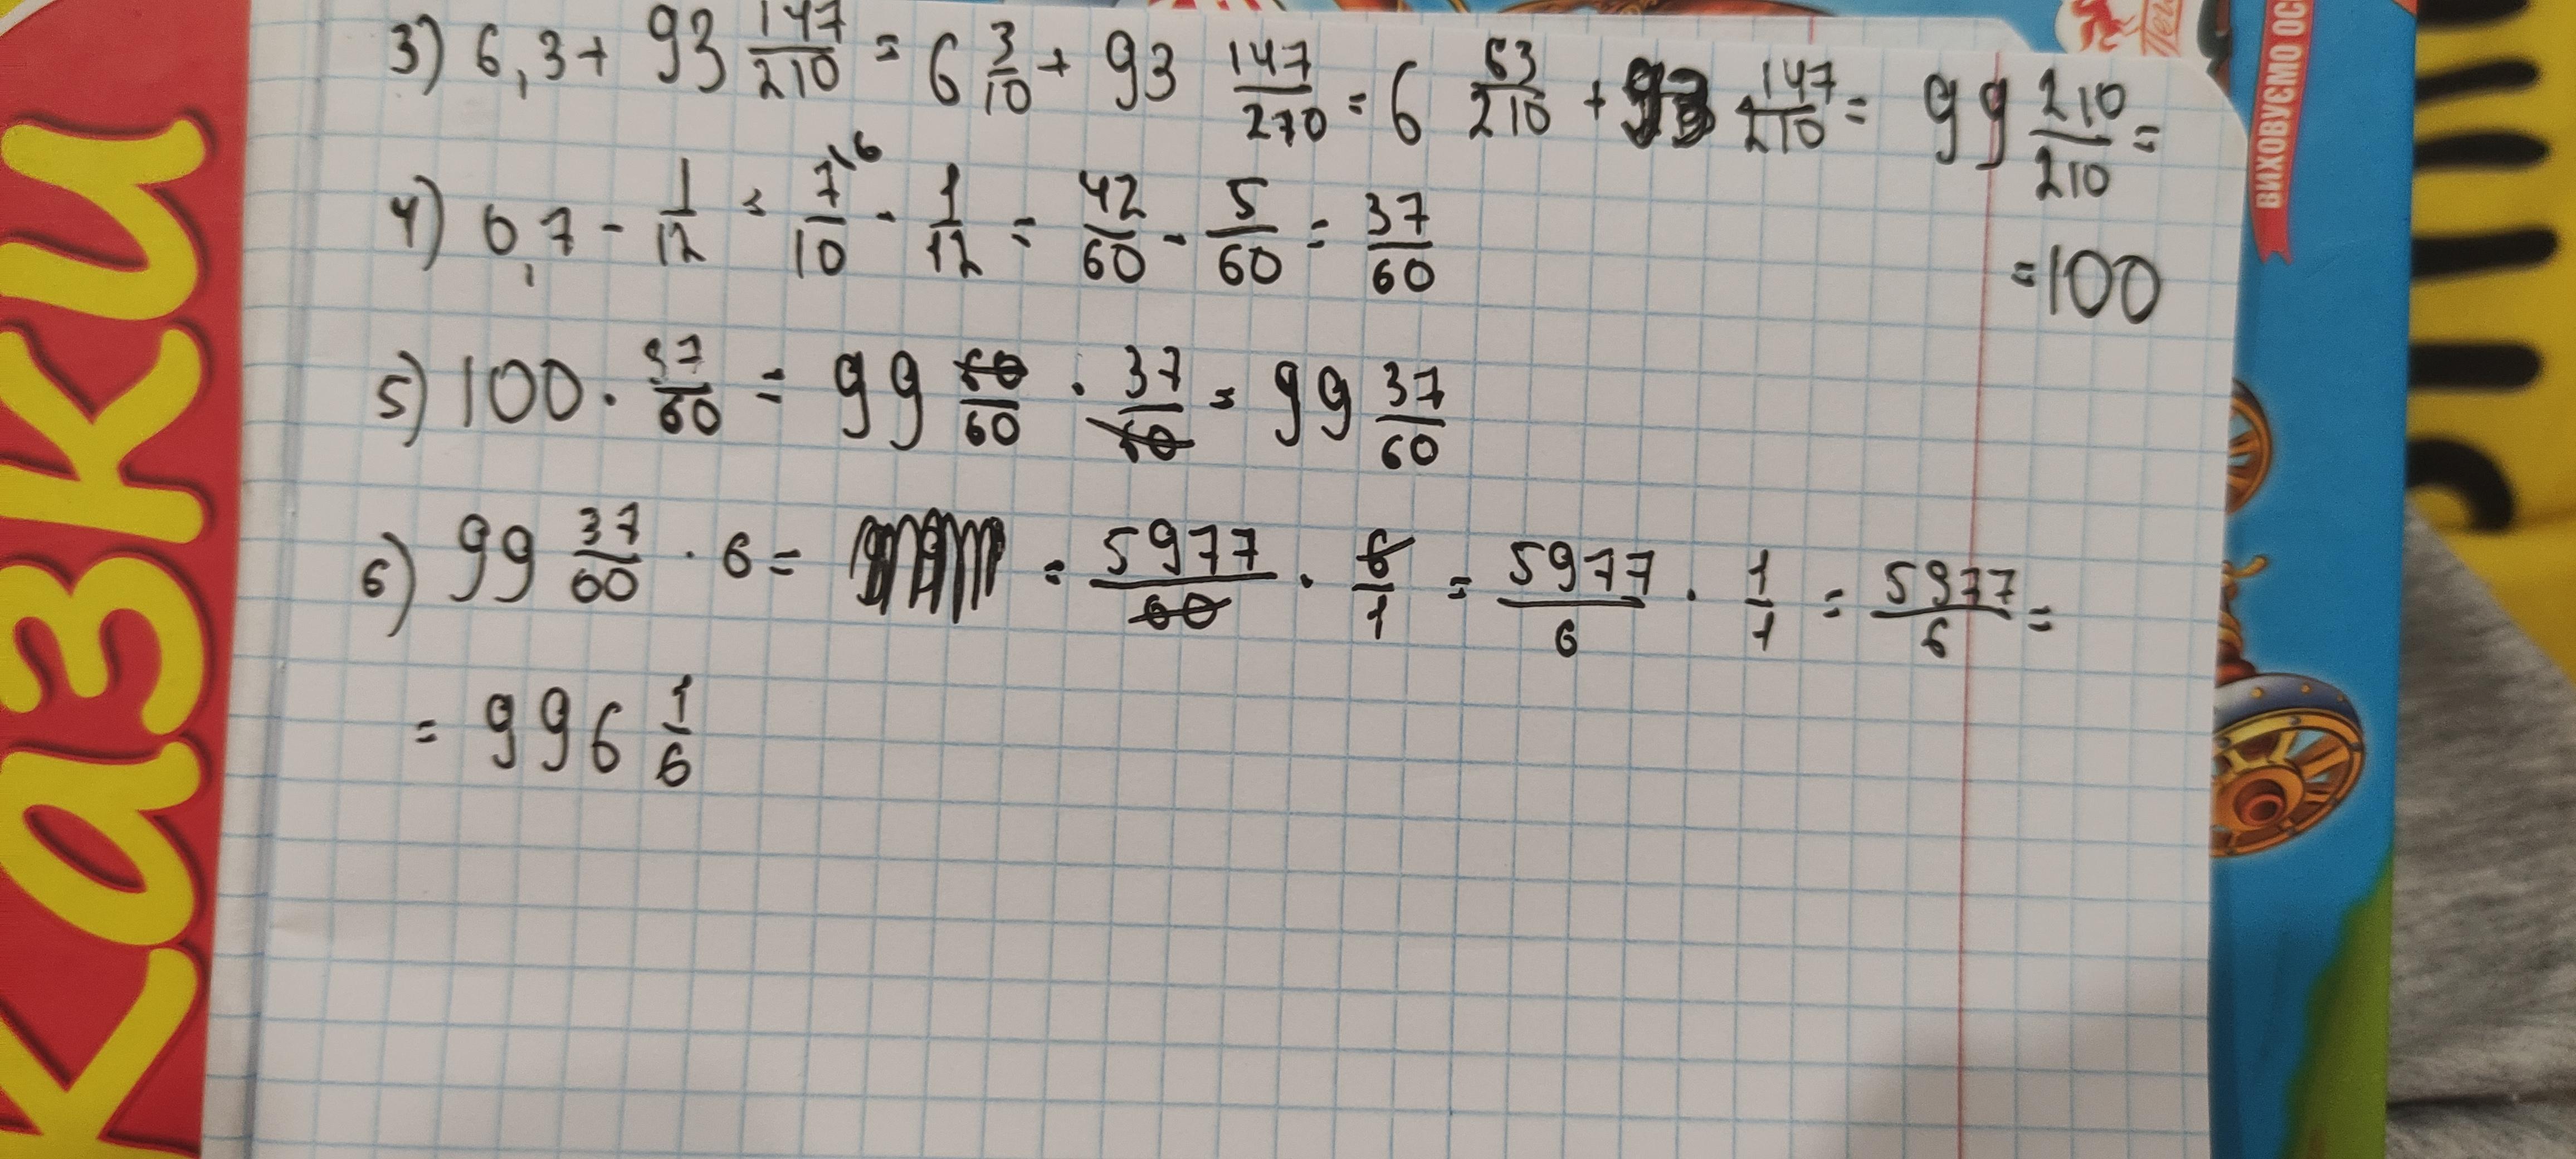 3) 6,3 + 93 147/210 = 6 3/10 + 93 147/210 = 6 63/210 + 93 147/210 = 99 210/210 =
= 100
4) 0,7 - 1/12 = 7\6/10 - 1/12 = 42/60 - 5/60 = 37/60
5) 100 · 37/60 = 99 60/60 · 37/60 = 99 37/60
6) 99 37/60 · 6 = = 5977/60 · 6/1 = 5977/6 · 1/1 = 5977/6 =
= 996 1/6
казки
ВИХОВУЄМО ОС
Пе